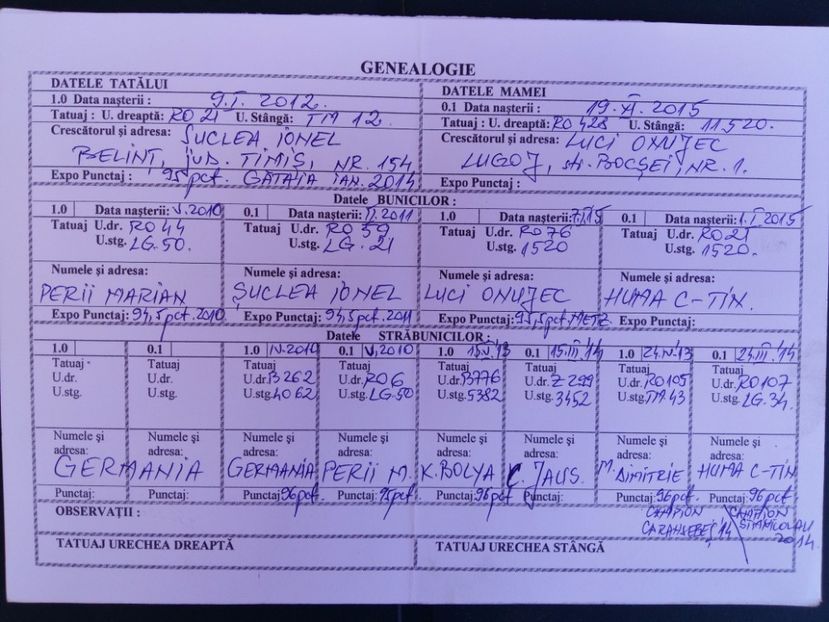 GENEALOGIE
DATELE TATĂLUI
1.0 Data nașterii : 9.I. 2012.
Tatuaj : U. dreaptă: RO 21 U. Stângă: TM 12.
Crescătorul și adresa: ȘUCLEA IONEL
BELINȚ, jud. TIMIȘ, NR. 154
Expo Punctaj : 95 pct. GĂTAIA IAN. 2014
DATELE MAMEI
0.1 Data nașterii : 19. XI. 2015
Tatuaj : U. dreaptă: RO 428 U. Stângă: 11520.
Crescătorul și adresa: LUCI ONUJEC
LUGOJ, str. BOCȘEI, NR. 1.
Expo Punctaj :
Datele BUNICILOR :
1.0 Data nașterii: V.2010 0.1 Data nașterii: II.2011 1.0 Data nașterii: 0.1 Data nașterii: 1.I.2015
Tatuaj U.dr. RO 44 Tatuaj U.dr. RO 59 Tatuaj U.dr. RO 76 Tatuaj U.dr. RO 21
U.stg. LG. 50. U.stg. LG. 21 U.stg. 1520 U.stg. 1520.
Numele și adresa: Numele și adresa: Numele și adresa: Numele și adresa:
PERII MARIAN ȘUCLEA IONEL LUCI ONUJEC HUMA C-TIN.
Expo Punctaj: 94,5 pct. 2010 Expo Punctaj: 94,5 pct. 2011 Expo Punctaj: 95,5 pct. METZ Expo Punctaj:
Datele STRĂBUNICILOR :
1.0 0.1 1.0 IV.2010 0.1 V.2010 1.0 0.1 15.III.'14 1.0 24.IV.'13 0.1 23.III.'14
Tatuaj Tatuaj Tatuaj Tatuaj Tatuaj Tatuaj Tatuaj Tatuaj
U.dr. U.dr. U.dr. B262 U.dr. RO6 U.dr. B776 U.dr. Z 299 U.dr. RO105 U.dr. RO107
U.stg. U.stg. U.stg. 4062 U.stg. LG.50 U.stg. 5382 U.stg. 3452 U.stg. TM.43 U.stg. LG.34.
Numele și Numele și Numele și Numele și Numele și Numele și Numele și Numele și
adresa: adresa: adresa: adresa: adresa: adresa: adresa: adresa:
GERMANIA GERMANIA PERII M. K. BOLYA C. JAUS. M. DIMITRIE HUMA C-TIN
Punctaj: Punctaj: Punctaj: 96 pct. Punctaj: 95 pct. Punctaj: 96 pct Punctaj: Punctaj: 96 pct. Punctaj: 96 pct.
OBSERVAȚII :
CAMPION CAMPION
CARANSEBEȘ '14
2014.
TATUAJ URECHEA DREAPTĂ
TATUAJ URECHEA STÂNGĂ